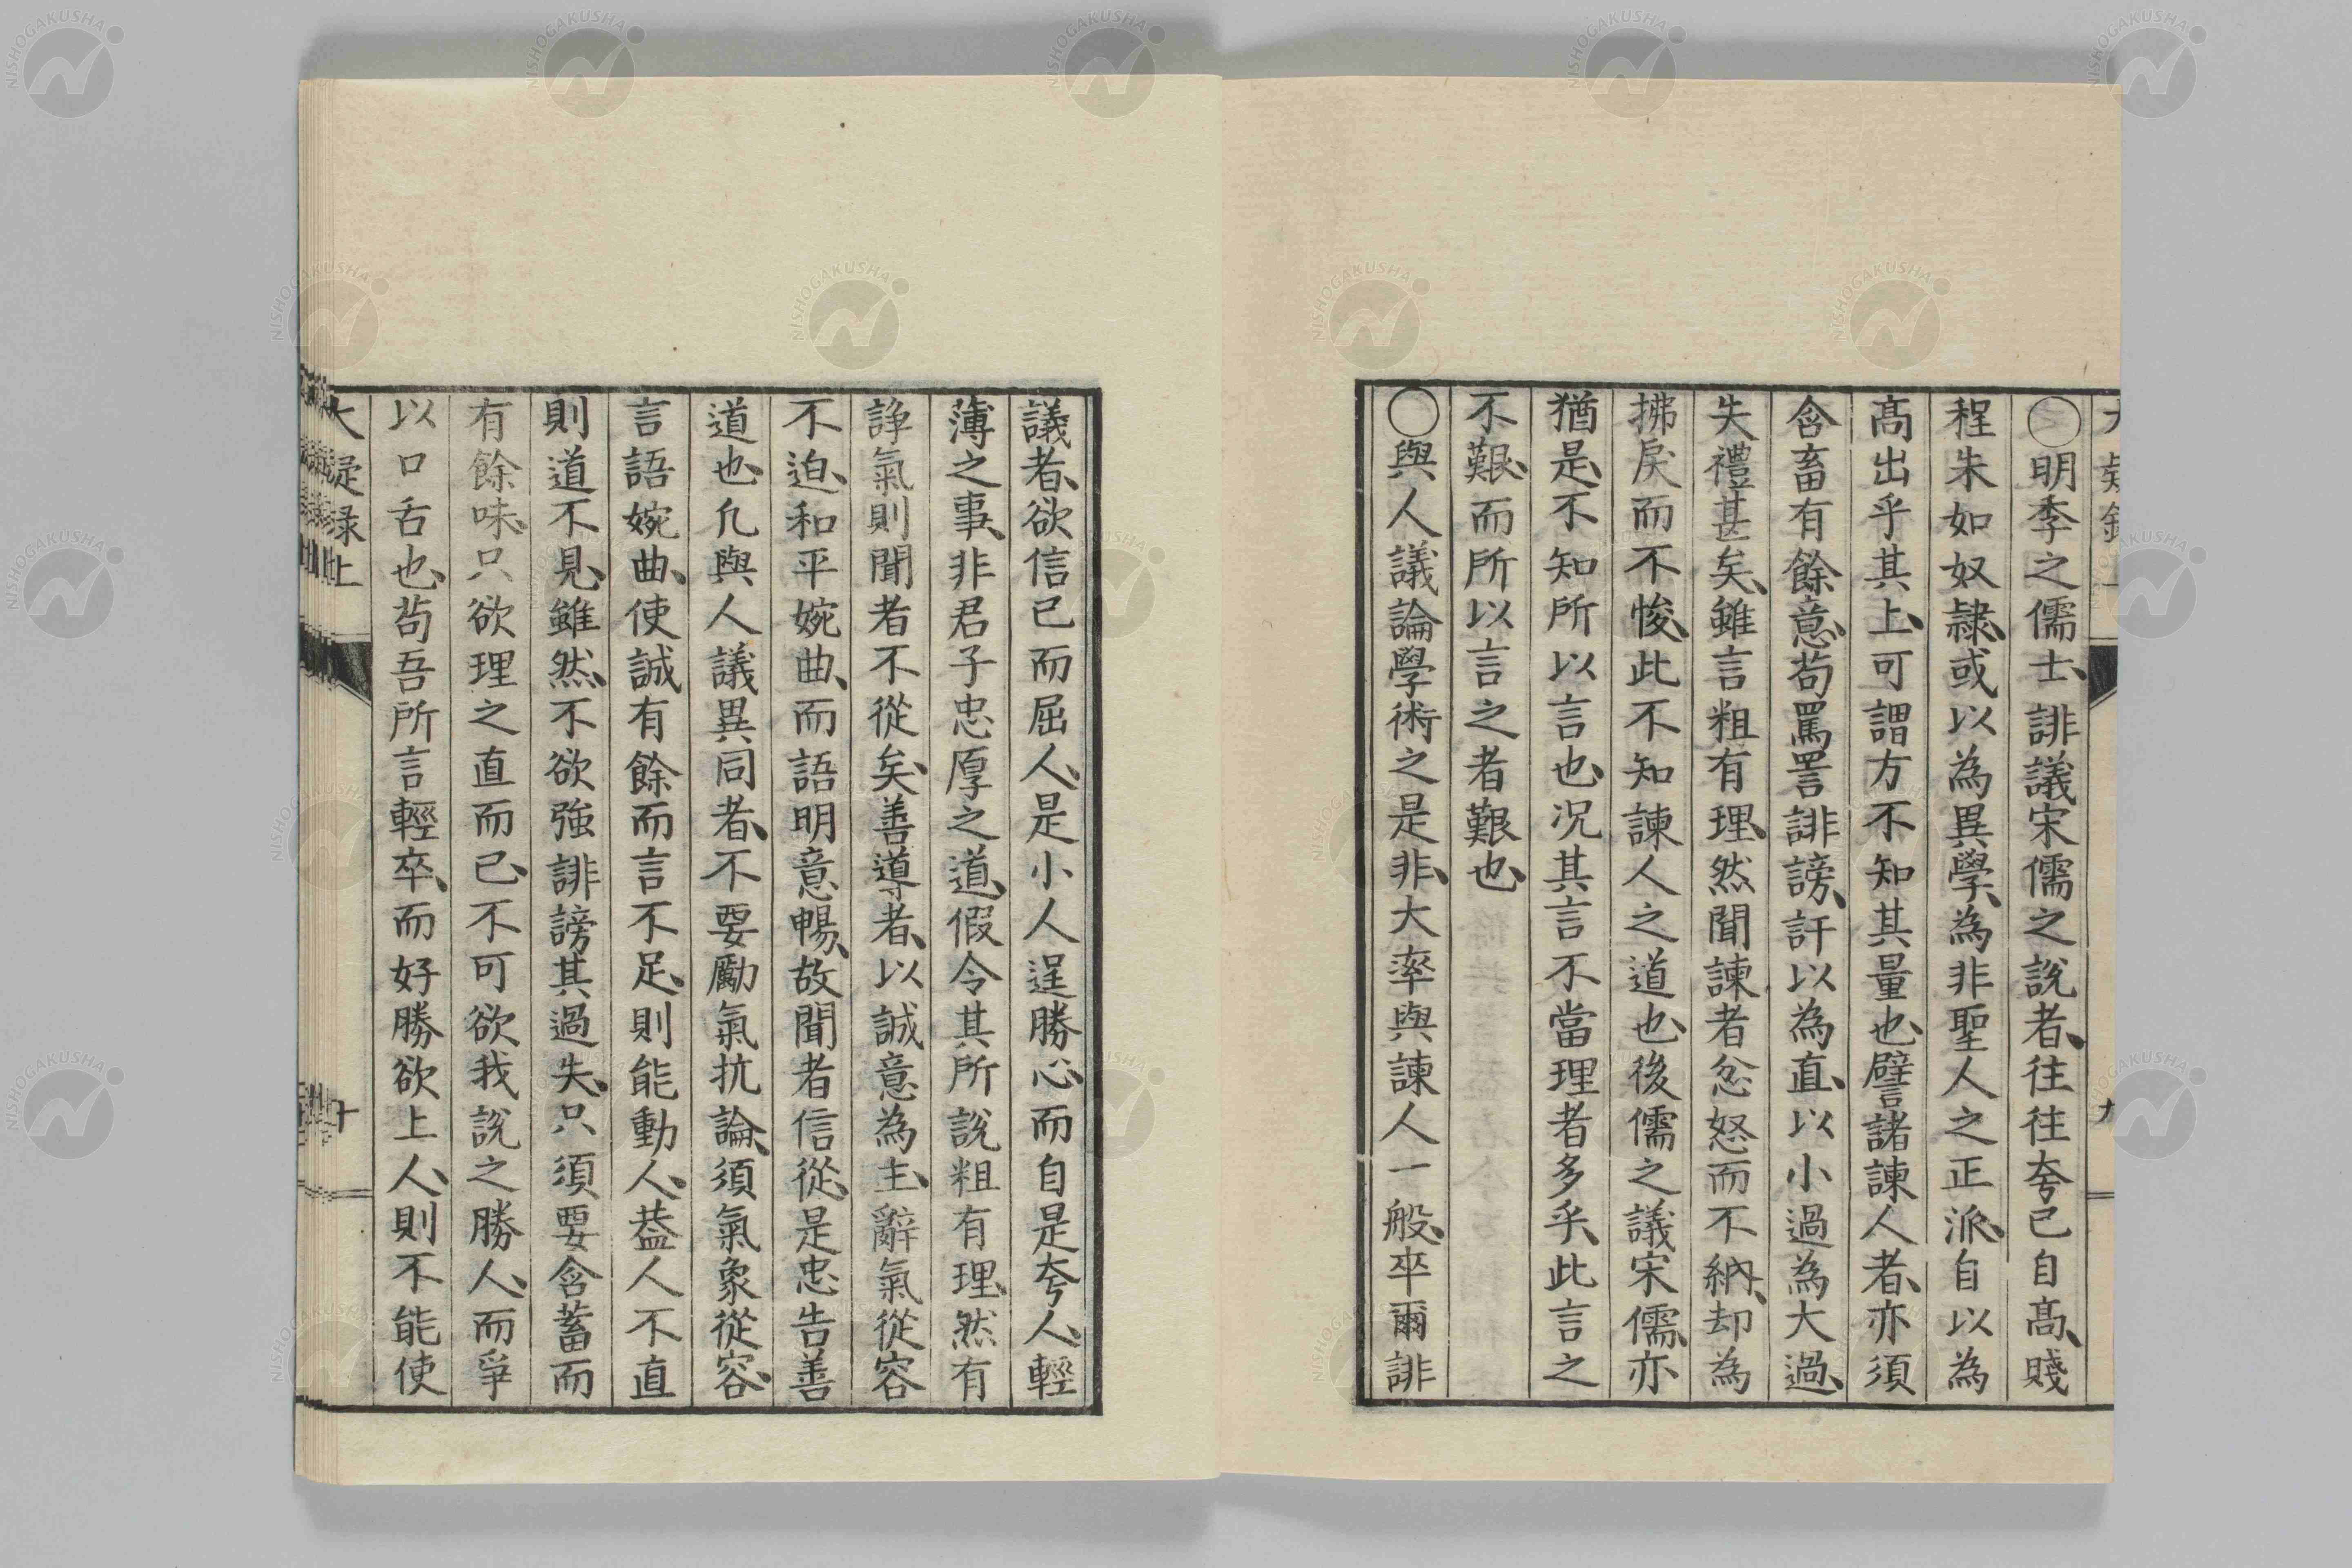 〇明季之儒士、誹議宋儒之說者、往往夸己自髙、賤
程朱如奴隸、或以為異學、為非聖人之正派、自以為
髙出乎其上、可謂方不知其量也、譬諸諫人者、亦須
含畜有餘意、苟罵詈誹謗、訐以為直、以小過為大過、
失禮甚矣、雖言粗有理、然聞諫者忿怒而不納、却為
拂戾而不悛、此不知諫人之道也、後儒之議宋儒、亦
猶是、不知所以言也、况其言不當理者多乎、此言之
不艱、而所以言之者艱也、
〇與人議論學術之是非、大率與諫人一般、卒爾誹
議者、欲信己而屈人、是小人逞勝心、而自是夸人、輕
薄之事、非君子忠厚之道、假令其所說粗有理、然有
諍氣則聞者不從矣、善導者、以誠意為主、辭氣從容
不迫、和平婉曲、而語明意暢、故聞者信從、是忠告善
道也、凡與人議異同者、不要勵氣抗論、須氣象從容、
言語婉曲、使誠有餘而言不足、則能動人、葢人不直
則道不見、雖然、不欲強誹謗其過失、只須要含蓄而
有餘味、只欲理之直而已、不可欲我說之勝人、而爭
以口舌也、苟吾所言輕卒、而好勝欲上人、則不能使
大疑録上
十